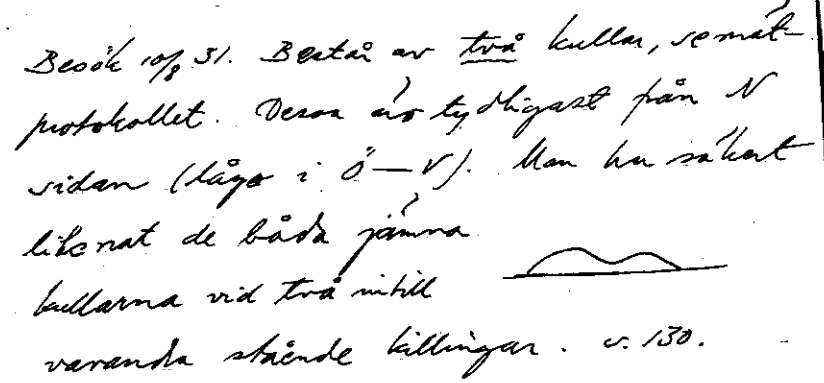 Besök 10/8 31. Består av två kullar, se mät-
protokollet. Dessa äro tydligast från N
sidan (läge i Ö–V). Man har säkert
liknat de båda jämna
kullarna vid två intill
varandra stående killingar. s. 130.